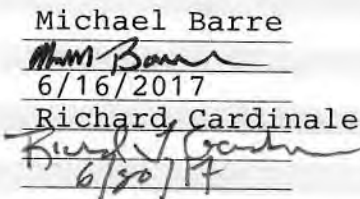 Michael Barre
6/16/2017
Richard Cardinale
Richard J Cardinale
6/20/17